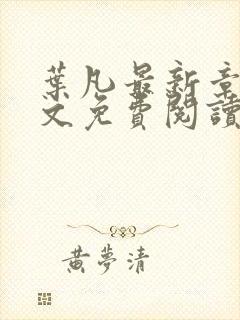 葉凡最新章
文免費閱讀
黃夢清